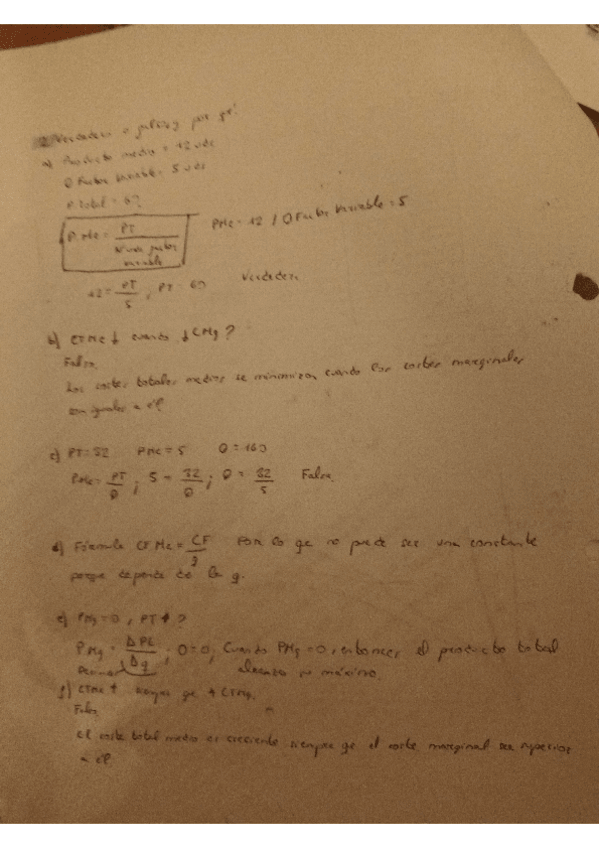 2. Verdadero o falso y por qé?
a) Producto medio = 12 uds
Q Factor Variable = 5 uds
P. total = 60?
P.Me = PT / factor variable PMe = 12 / Q Factor Variable = 5
12 = PT / 5 ; PT = 60 Verdadera
b) CTMe ↓ cuando ↓ CMg?
Falsa.
Los costes totales medios se minimizan cuando los costes marginales
son iguales a él
c) PT = 32 PMe = 5 Q = 160
PMe = PT / Q ; 5 = 32 / Q ; Q = 32 / 5 Falsa.
d) Fórmula CFMe = CF / q Por lo qe no puede ser una constante
porqe depende de la q.
e) PMg = 0, PT ?
PMg = Δ PT / Δ q ; 0 = 0; Cuando PMg = 0, entonces el producto total
alcanza su máximo.
f) CTMe ↑ qe CTMg.
Falsa
El coste total medio es creciente siempre qe el coste marginal sea superior
a él